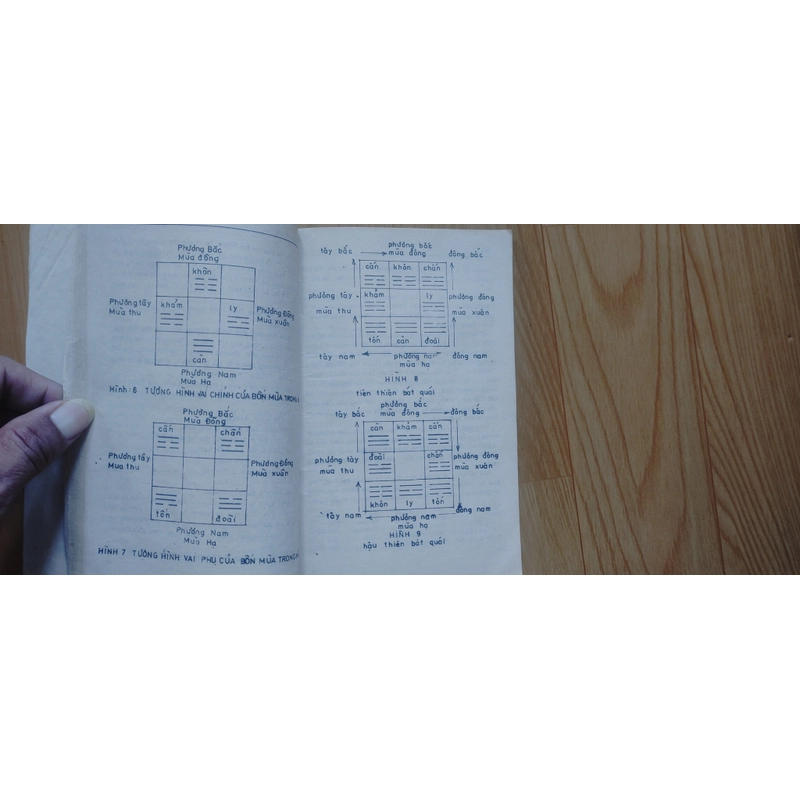 Phương Bắc
Mùa đông
khôn
Phương tây
Mùa thu
khảm
ly
Phương Đông
Mùa xuân
càn
Phương Nam
Mùa Hạ
Hình: 6 TƯỢNG HÌNH VAI CHÍNH CỦA BỐN MÙA TRONG
Phương Bắc
Mùa Đông
cấn
chấn
Phương tây
Mùa thu
Phương Đông
Mùa xuân
tốn
đoài
Phương Nam
Mùa Hạ
HÌNH 7 TƯỢNG HÌNH VAI PHỤ CỦA BỐN MÙA TRONG
phương bắc
tây bắc
mùa đông
đông bắc
cấn
khôn
chấn
phương tây
khảm
ly
phương đông
mùa thu
mùa xuân
tốn
càn
đoài
tây nam
phương nam
đông nam
mùa hạ
HÌNH 8
tiên thiên bát quái
phương bắc
tây bắc
mùa đông
đông bắc
càn
khảm
cấn
phương tây
đoài
chấn
phương đông
mùa thu
mùa xuân
khôn
ly
tốn
tây nam
phương nam
đông nam
mùa hạ
HÌNH 9
hậu thiên bát quái